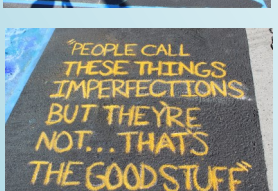 "PEOPLE CALL
THESE THINGS
IMPERFECTIONS
BUT THEY'RE
NOT...THAT'S
THE GOOD STUFF"